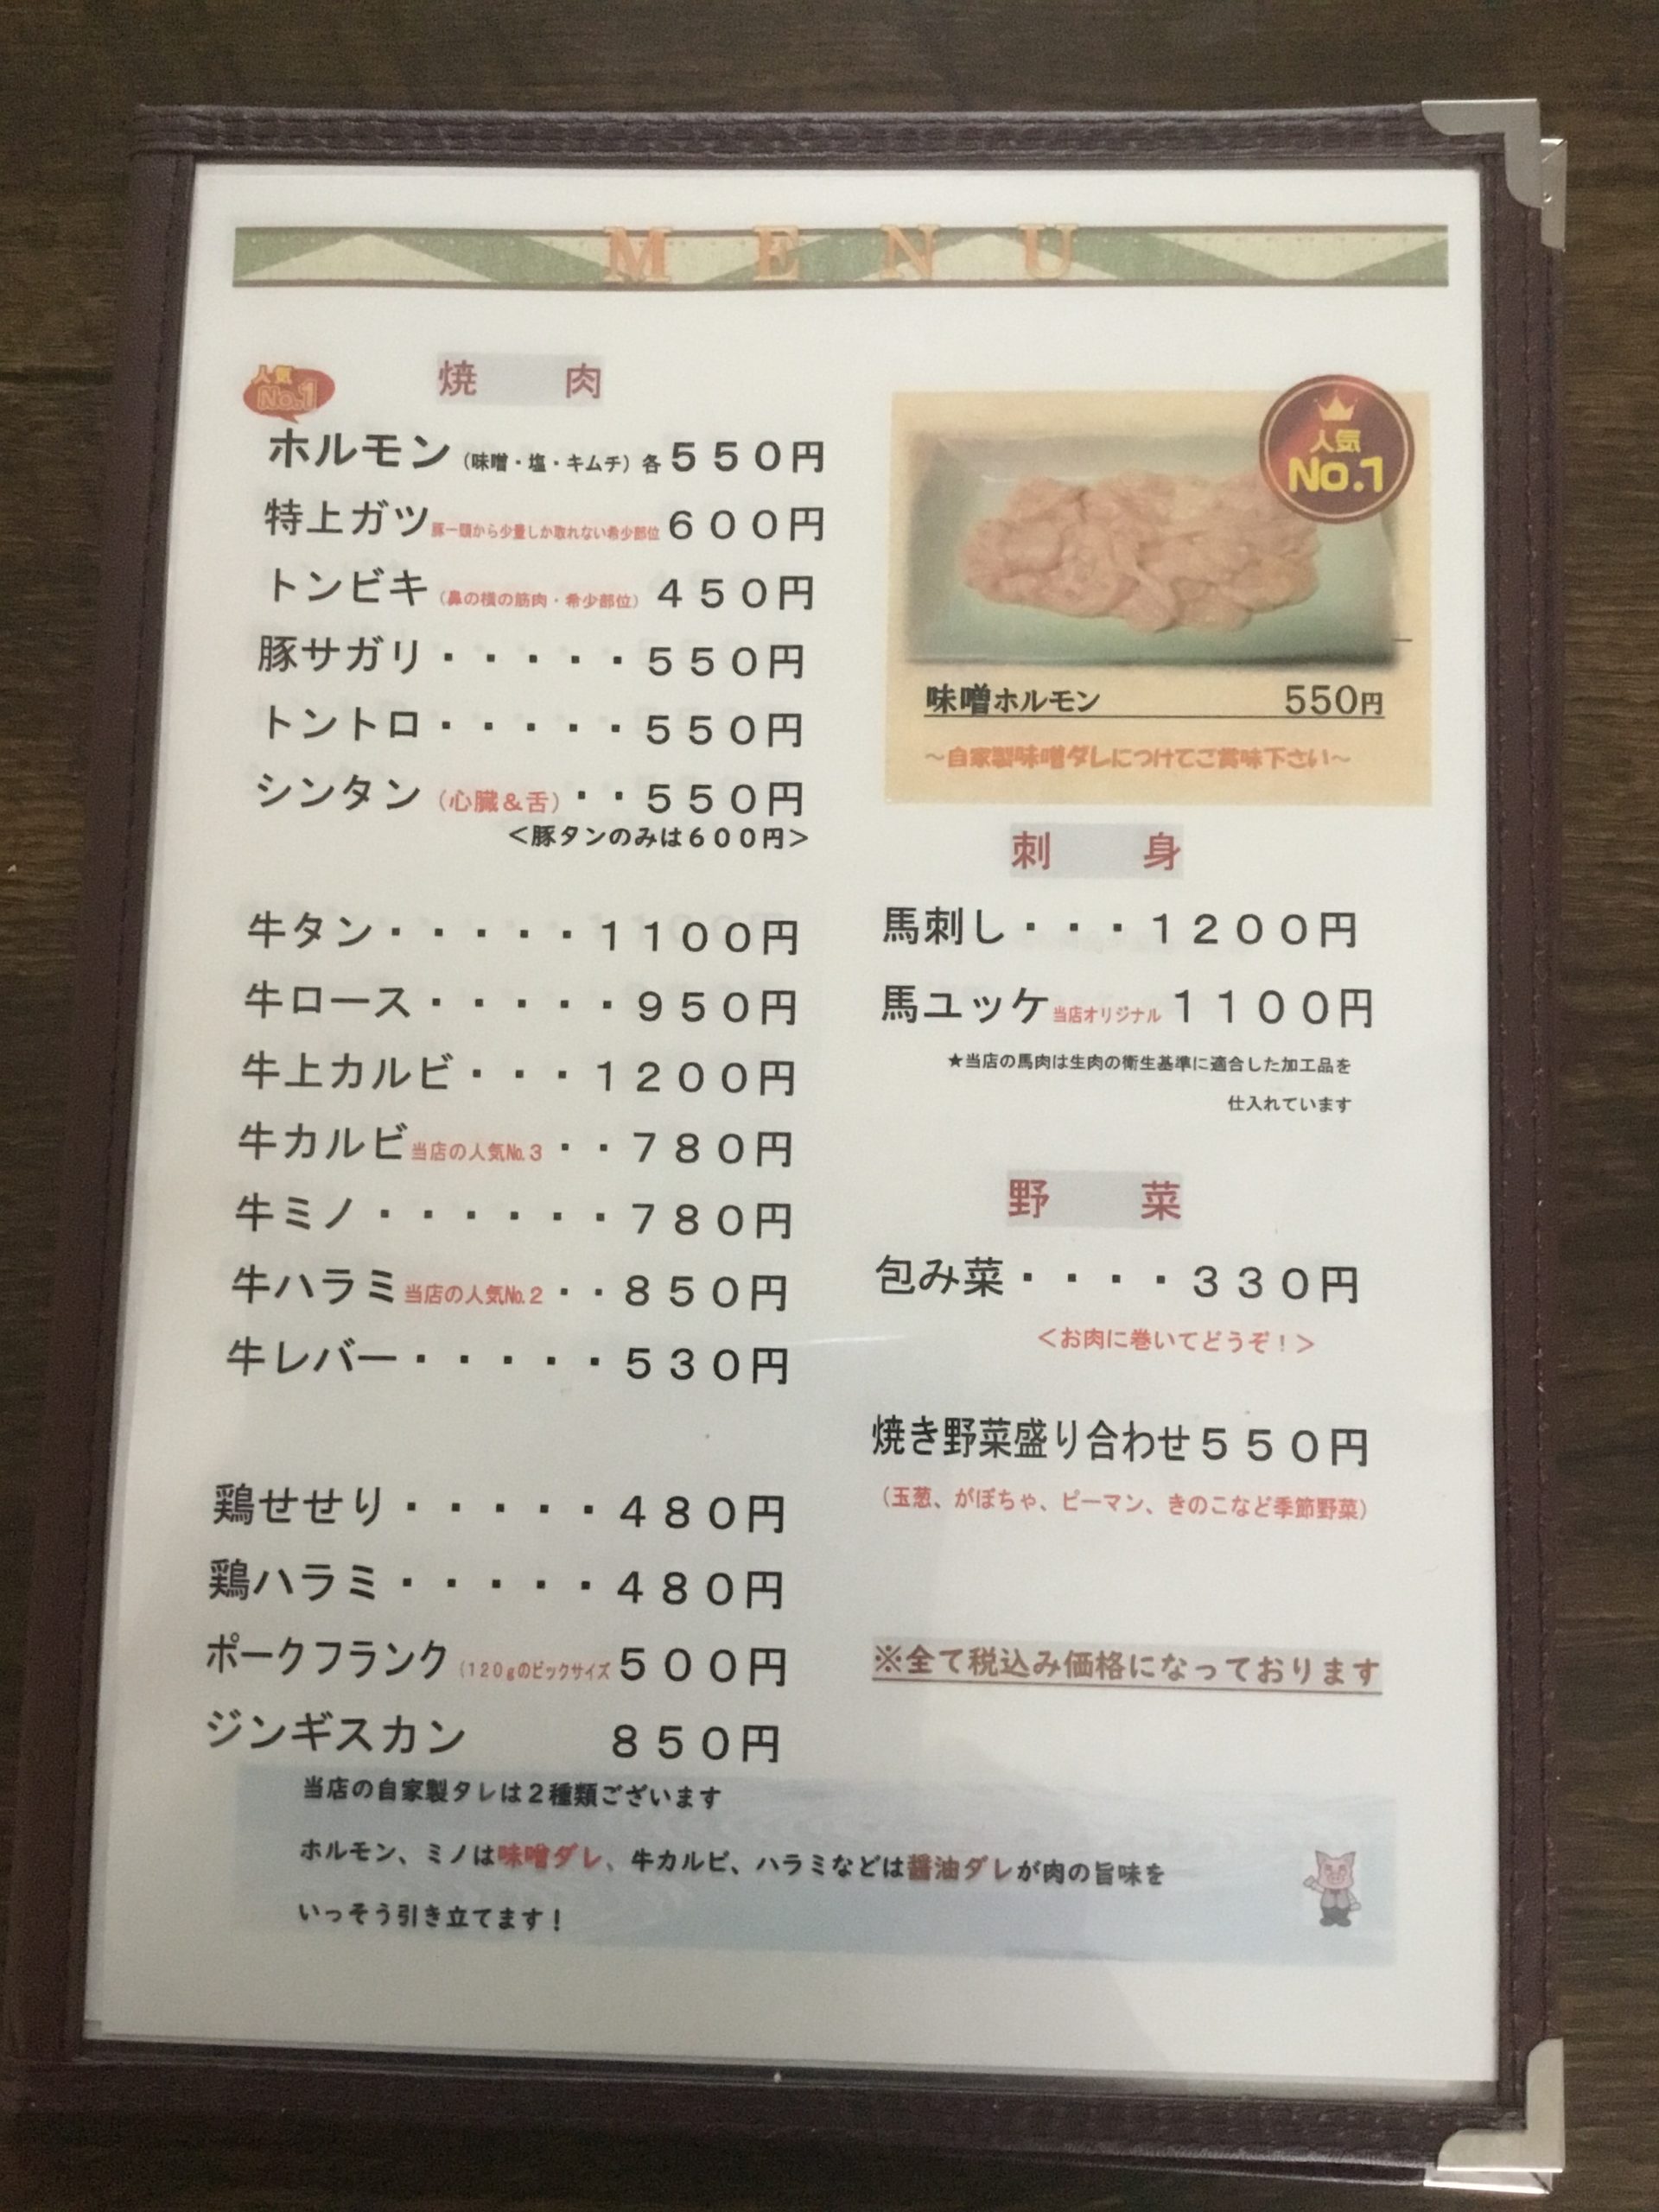 MENU
人気
No.1
焼 肉
ホルモン(味噌・塩・キムチ)各550円
特上ガツ豚一頭から少量しか取れない希少部位600円
トンビキ(鼻の横の筋肉・希少部位)450円
豚サガリ・・・・・550円
トントロ・・・・・550円
シンタン(心臓&舌)・・550円
<豚タンのみは600円>
牛タン・・・・・1100円
牛ロース・・・・・950円
牛上カルビ・・・1200円
牛カルビ当店の人気№3・・780円
牛ミノ・・・・・・780円
牛ハラミ当店の人気№2・・850円
牛レバー・・・・・530円
鶏せせり・・・・・480円
鶏ハラミ・・・・・480円
ポークフランク(120gのビックサイズ500円
ジンギスカン 850円
人気
No.1
味噌ホルモン 550円
~自家製味噌ダレにつけてご賞味下さい~
刺 身
馬刺し・・・1200円
馬ユッケ当店オリジナル1100円
★当店の馬肉は生肉の衛生基準に適合した加工品を
仕入れています
野 菜
包み菜・・・・330円
<お肉に巻いてどうぞ!>
焼き野菜盛り合わせ550円
(玉葱、かぼちゃ、ピーマン、きのこなど季節野菜)
※全て税込み価格になっております
当店の自家製タレは2種類ございます
ホルモン、ミノは味噌ダレ、牛カルビ、ハラミなどは醤油ダレが肉の旨味を
いっそう引き立てます!